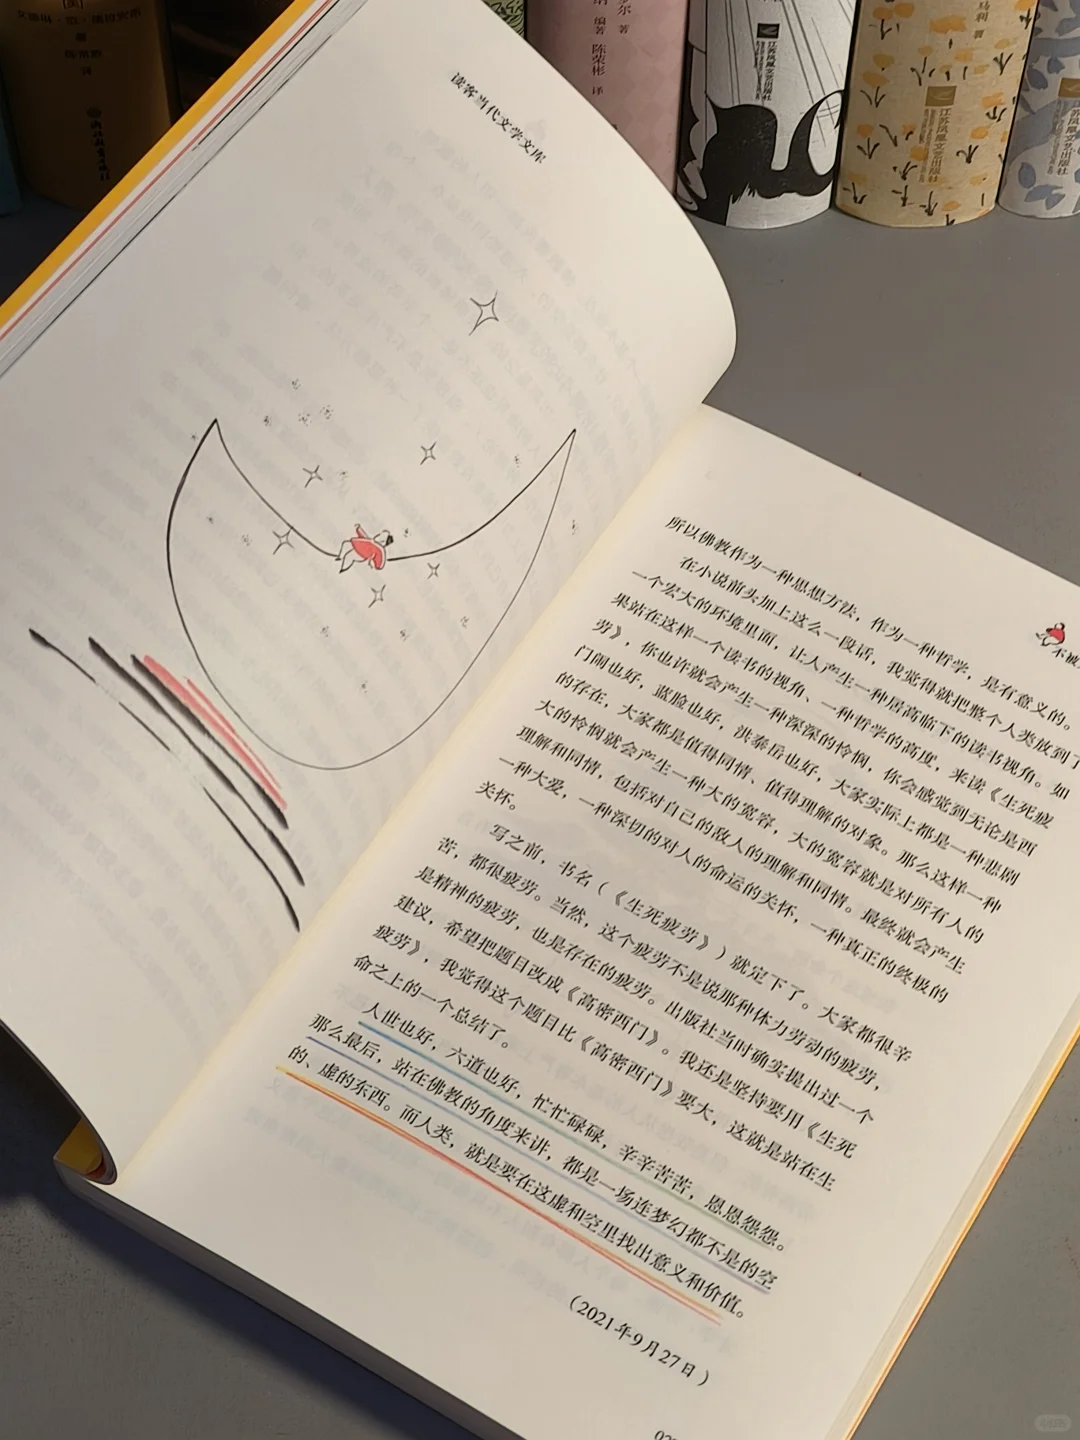 江苏凤凰文艺出版社
江苏凤凰文艺出版社
编著 陈荣彬 译
读客当代文学文库
不被
所以佛教作为一种思想方法，作为一种哲学，是有意义的。
在小说前头加上这么一段话，我觉得就把整个人类放到了
一个宏大的环境里面，让人产生一种居高临下的读书视角。如
果站在这样一个读书的视角、一种哲学的高度，来读《生死疲
劳》，你也许就会产生一种深深的怜悯，你会感觉到无论是西
门闹也好，蓝脸也好，洪泰岳也好，大家实际上都是一种悲剧
的存在，大家都是值得同情、值得理解的对象。那么这样一种
大的怜悯就会产生一种大的宽容，大的宽容就是对所有人的
理解和同情，包括对自己的敌人的理解和同情。最终就会产生
一种大爱，一种深切的对人的命运的关怀，一种真正的终极的
关怀。
写之前，书名（《生死疲劳》）就定下了。大家都很辛
苦，都很疲劳。当然，这个疲劳不是说那种体力劳动的疲劳，
是精神的疲劳，也是存在的疲劳。出版社当时确实提出过一个
建议，希望把题目改成《高密西门》。我还是坚持要用《生死
疲劳》，我觉得这个题目比《高密西门》要大，这就是站在生
命之上的一个总结了。
人世也好，六道也好，忙忙碌碌，辛辛苦苦，恩恩怨怨。
那么最后，站在佛教的角度来讲，都是一场连梦幻都不是的空
的、虚的东西。而人类，就是要在这虚和空里找出意义和价值。
（2021年9月27日）